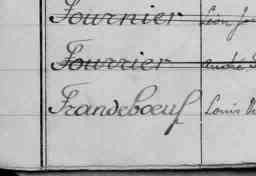 Fournier Léon
Fourrier André
Frandebœuf Louis